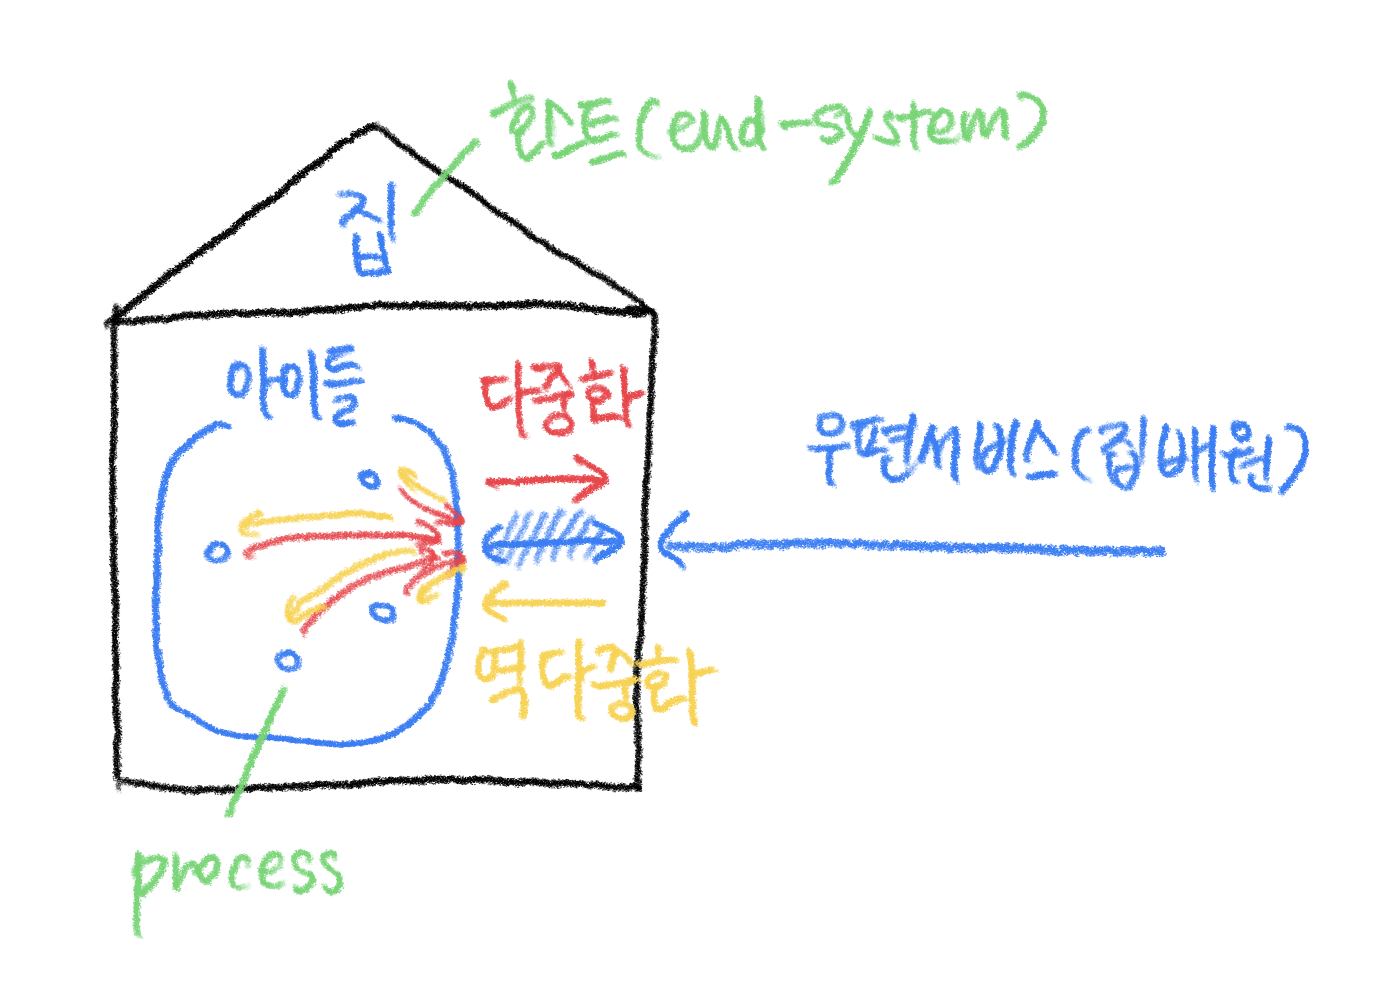 호스트(end-system)
집
아이들
다중화
우편서비스(집배원)
역다중화
process